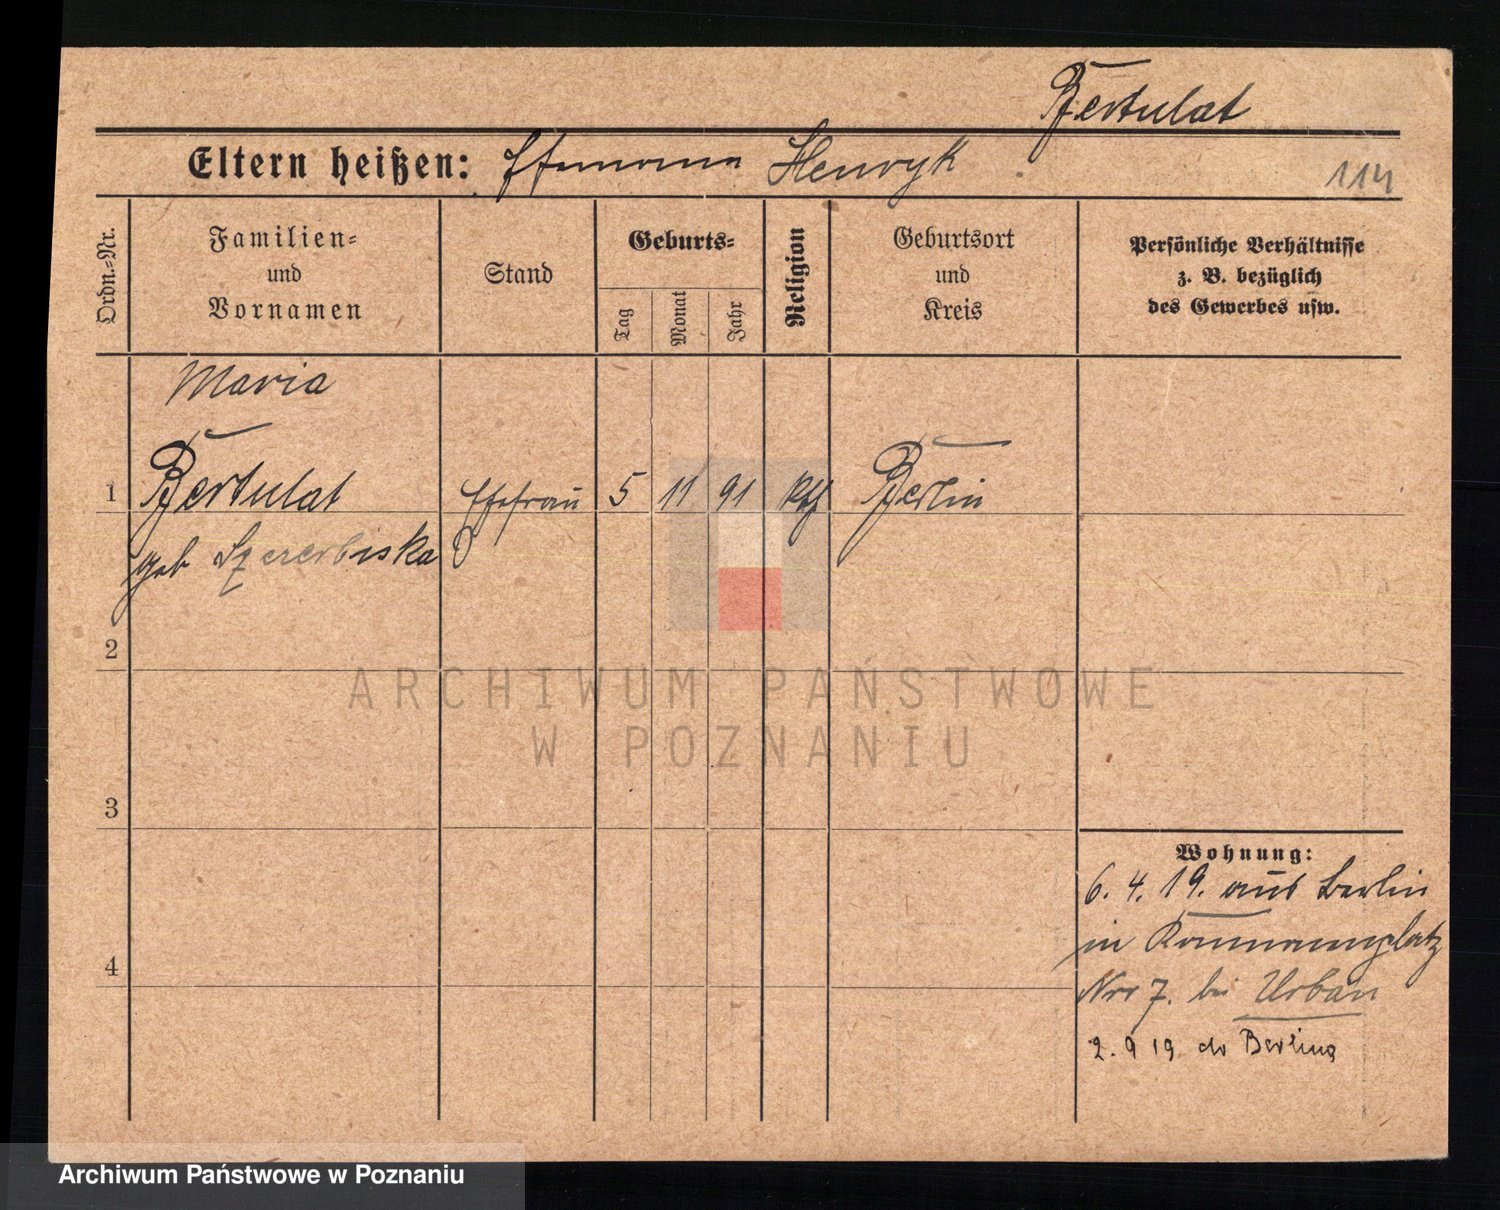 Bertulat
Eltern heißen: Ehemann Henryk
114
Ordn.-Nr.
Familien-
und
Vornamen
Stand
Geburts-
Tag
Monat
Jahr
Religion
Geburtsort
und
Kreis
Persönliche Verhältnisse
z. B. bezüglich
des Gewerbes usw.
Maria
1 Bertulat Ehefrau 5 11 91 kth Berlin
geb
2
ARCHIWUM PAŃSTWOWE
W POZNANIU
3
Wohnung:
6. 4. 19. aus Berlin
4
in
Nro 7. bei Urban
2. 9 19 do Berlina
Archiwum Państwowe w Poznaniu